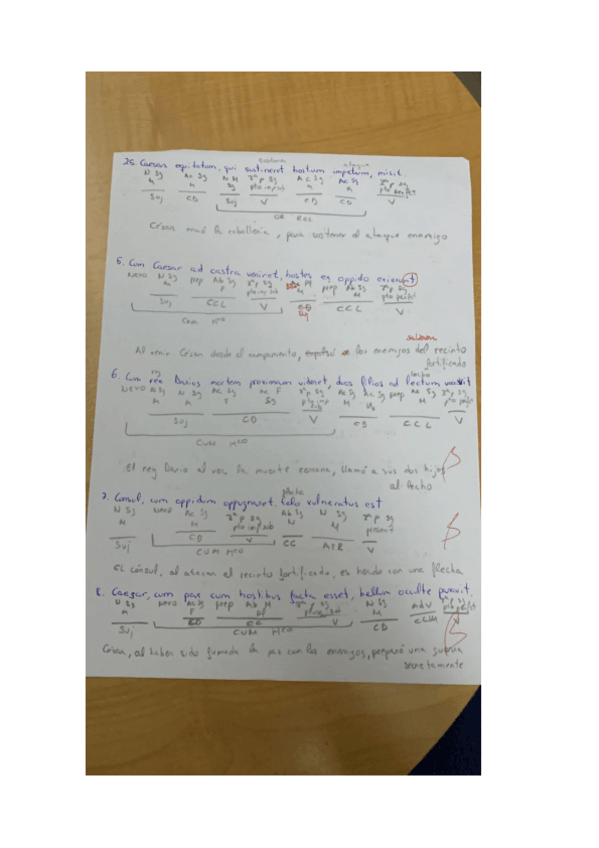 25. Caesar equitatum, qui sustineret hostium impetum, misit.
N Sg Ac Sg N M 3ª p Sg Ac Sg Ac Sg 3ª p Sg
Suj CD Suj V CD CD V
OR REL
César envió la caballería, para sostener el ataque enemigo
5. Cum Caesar ad castra veniret, hostes ex oppido exierunt
Nexo N Sg prep Ab Sg 3ª p Sg prep Ab Sg 3ª p Sg
Suj CCL V CD CCL V
Suj
CUM Hco
salieron
Al venir César desde el campamento, los enemigos del recinto
fortificado
lecho
6. Cum rex Darius mortem proximam videret, duos filios ad lectum vocavit
Nexo N Sg N Sg Ac Sg Ac F 3ª p Sg prep Ac Sg 3ª p Sg
Suj CD V CD CCL V
CUM Hco
El rey Dario al ver la muerte cercana, llamó a sus dos hijos
al lecho
flecha
7. Consul, cum oppidum oppugnaret, telo vulneratus est
N Sg Nexo Ac Sg 3ª p Sg Ab Sg N Sg 3ª p Sg
Suj CD V CC ATR V
CUM Hco
El cónsul, al atacar el recinto fortificado, es herido con una flecha
8. Caesar, cum pax cum hostibus facta esset, bellum occulte paravit.
N Sg Nexo Ac Sg prep 3ª p Sg N Sg Adv 3ª p Sg
Suj CD CC V CD CCM V
CUM Hco
César, al haber sido firmada la paz con los enemigos, preparó una guerra
secretamente